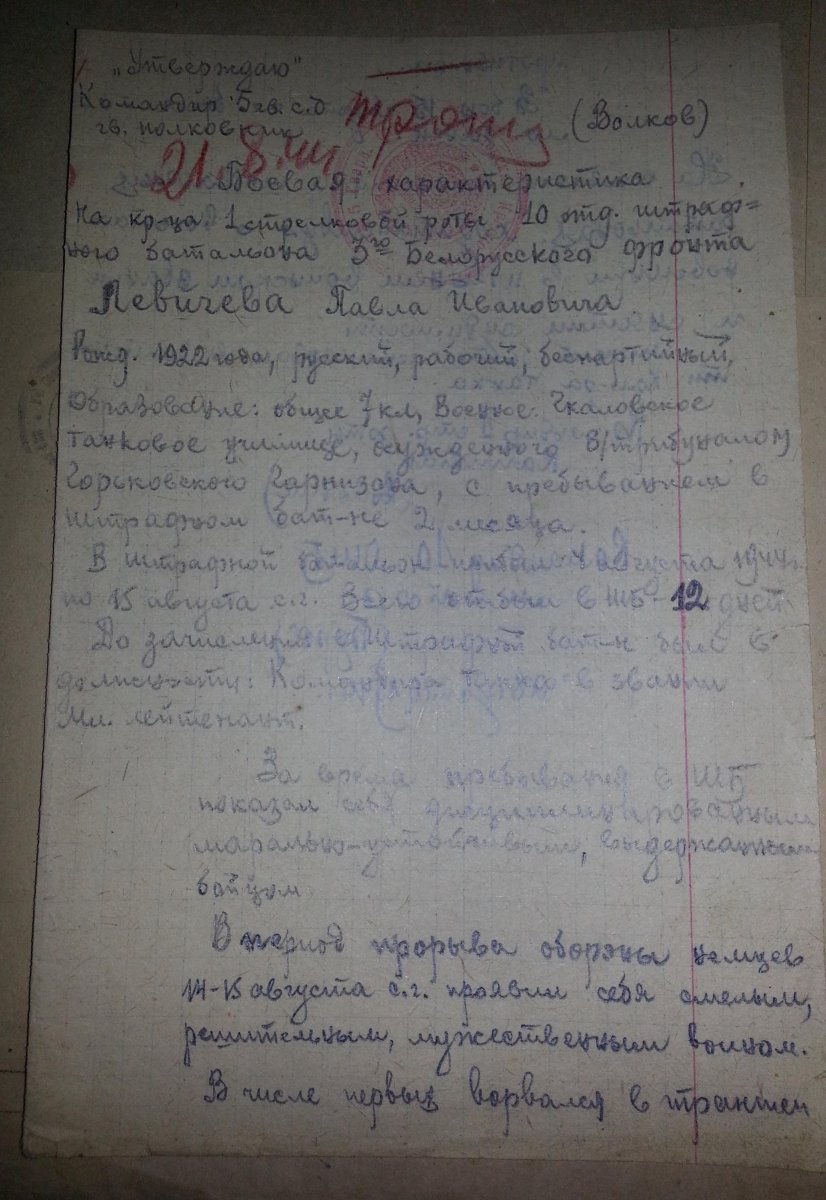 „Утверждаю"
Командир 5 гв. с.д
гв. полковник (Волков)
21.8.44
Боевая характеристика
На кр-ца 1 стрелковой роты 10 отд. штраф=
ного батальона 3го Белорусского фронта
Левичева Павла Ивановича
Рожд. 1922 года, русский, рабочий, беспартийный,
Образование: общее 7 кл, Военное: Чкаловское
танковое училище, осужденного В/трибуналом
Горьковского Гарнизона, с пребыванием в
штрафном бат-не 2 месяца.
В штрафной батальон прибыл 4 августа 1944г.
по 15 августа с.г. Всего отбыл в ШБ- 12 дней
До зачисления в штрафной бат-н был в
должности: Командира танка в звании
Мл. лейтенант.
За время пребывания в ШБ
показал себя дисциплинированным
марально-устойчивым, выдержанным
бойцом.
В период прорыва обороны немцев
14-15 августа с.г. проявил себя смелым,
решительным, мужественным воином.
В числе первых ворвался в траншеи